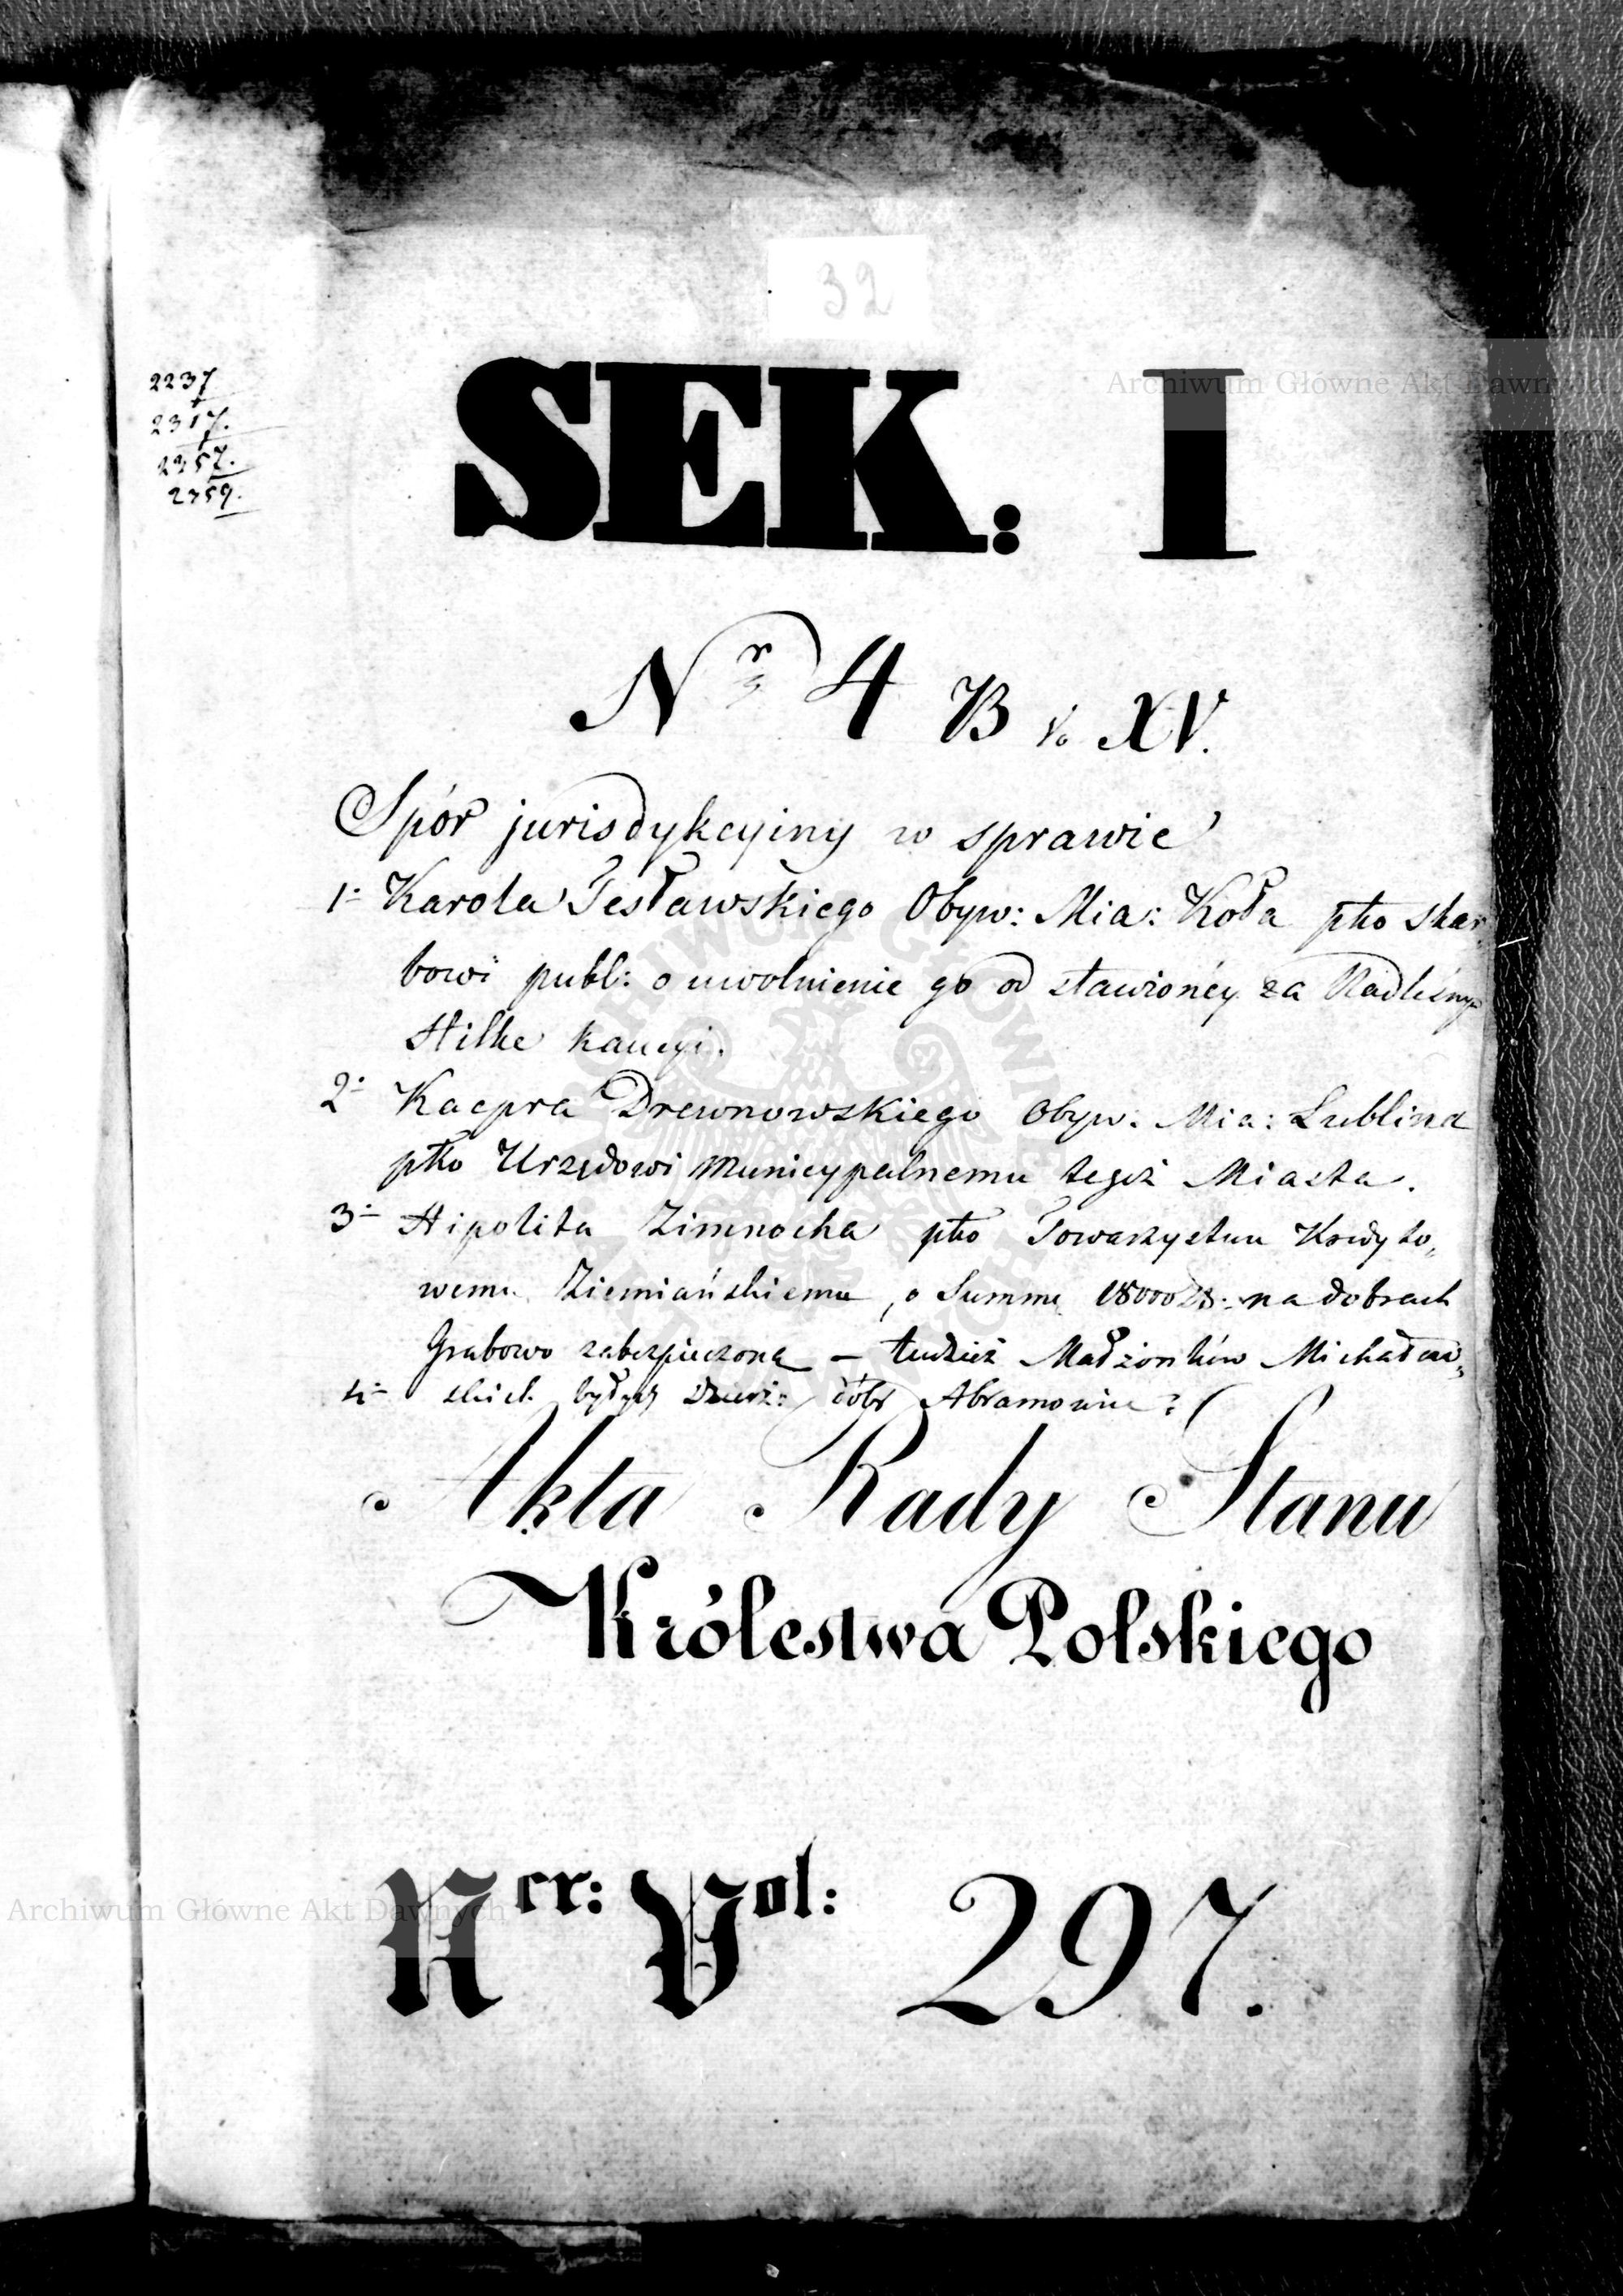 32
2237
2317.
2357.
2359.
SEK: I
Nr 4 B Vo XV.
Spór jurisdykcyiny w sprawie
1- Karola Tesławskiego Obyw: Mia: Koła pko skar,
bowi publ: o uwolnienie go od stawionéy za Nadleśnym
Hilke kaucyi.
2- Kacpra Drewnowskiego Obyw: Mia: Lublina
pko Urzędowi Municypalnemu tegoż Miasta.
3- Hipolita Zimnocha pko Towarzystwu Kredyto,,
wemu Ziemiańskiemu, o Summę 18000 Zł: na dobrach
Grabowo zabezpieczoną – tudzież Małżonków Michałow,,
4- skich byłych Dzierż: dóbr Abramowice
Akta Rady Stanu
Królestwa Polskiego
Ner: Vol: 297.
Archiwum Główne Akt Dawnych
Archiwum Główne Akt Dawnych
ARCHIWUM GŁÓWNE AKT DAWNYCH